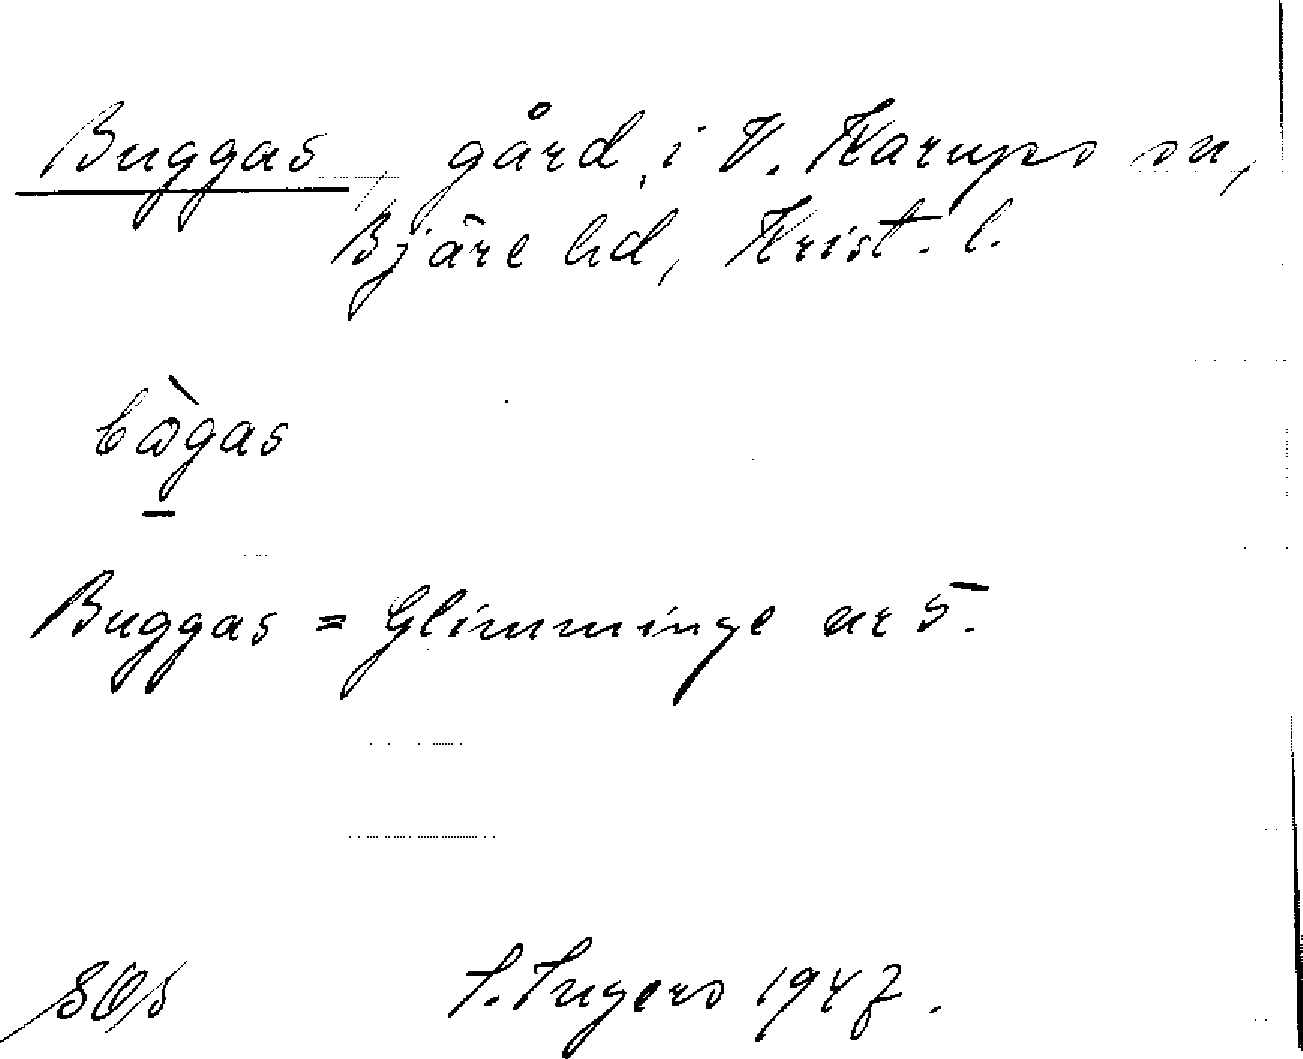 Buggas, gård, i V. Karups sn,
Bjäre hd, Krist. l.
bωgas
Buggas = Glimminge nr 5.
I. Ingers 1947.